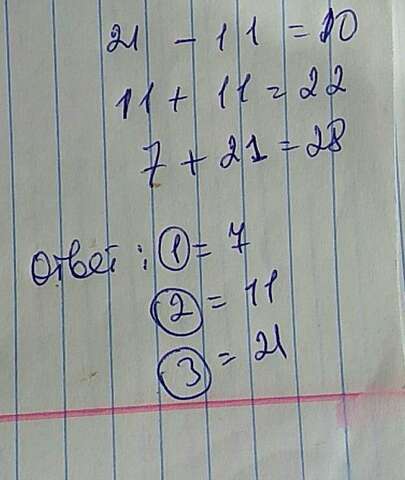 21 - 11 = 10
11 + 11 = 22
7 + 21 = 28
Ответ: 1 = 7
2 = 11
3 = 21